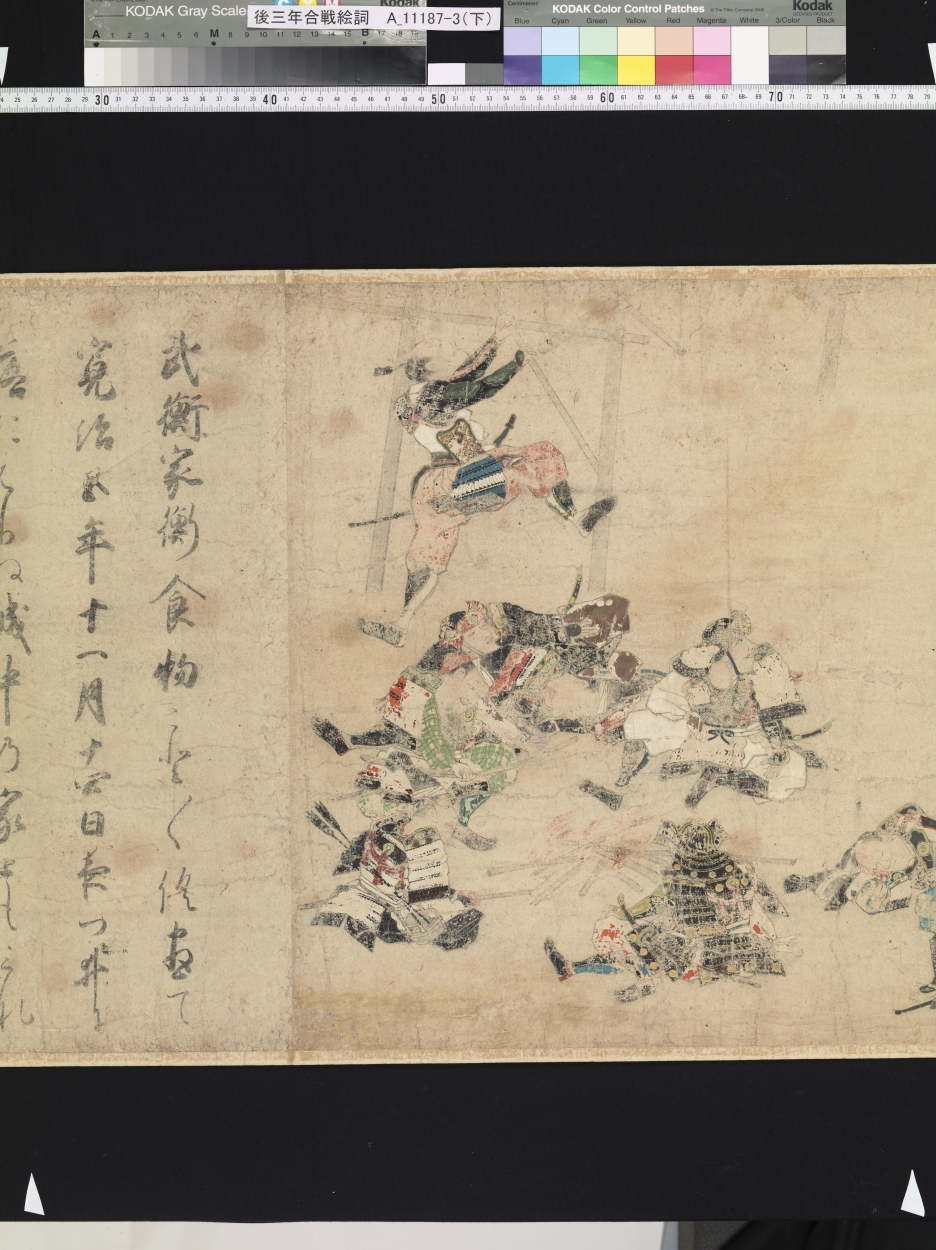 KODAK Gray Scale
Kodak
A 1 2 3 4 5 6 M 8 9 10 11 12 13 14 15 B 17 18 19
後三年合戦絵詞 A_11187-3(下)
Centimetres
KODAK Color Control Patches
Kodak
LICENSED PRODUCT
Blue Cyan Green Yellow Red Magenta White 3/Color Black
24 25 26 27 28 29 30 31 32 33 34 35 36 37 38 39 40 41 42 43 44 45 46 47 48 49 50 51 52 53 54 55 56 57 58 59 60 61 62 63 64 65 66 67 68 69 70 71 72 73 74 75 76 77 78 79
武衡家衡食物こと〱く尽て
寛治五年十一月十四日夜つゐに
城中の家